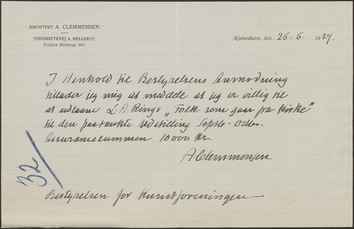 ARKITEKT A. CLEMMENSEN
København, den 26-6. 1927.
I Henhold til Bestyrelsens Anmodning
tillader jeg mig at meddele at jeg er villig til
at udlaane L. A. Rings „Folk som gaar fra Kirke"
til den paatænkte Udstilling Septb-Octbr.
Assurancesummen 10000 Kr
A Clemmensen
32
Bestyrelsen for Kunstforeningen